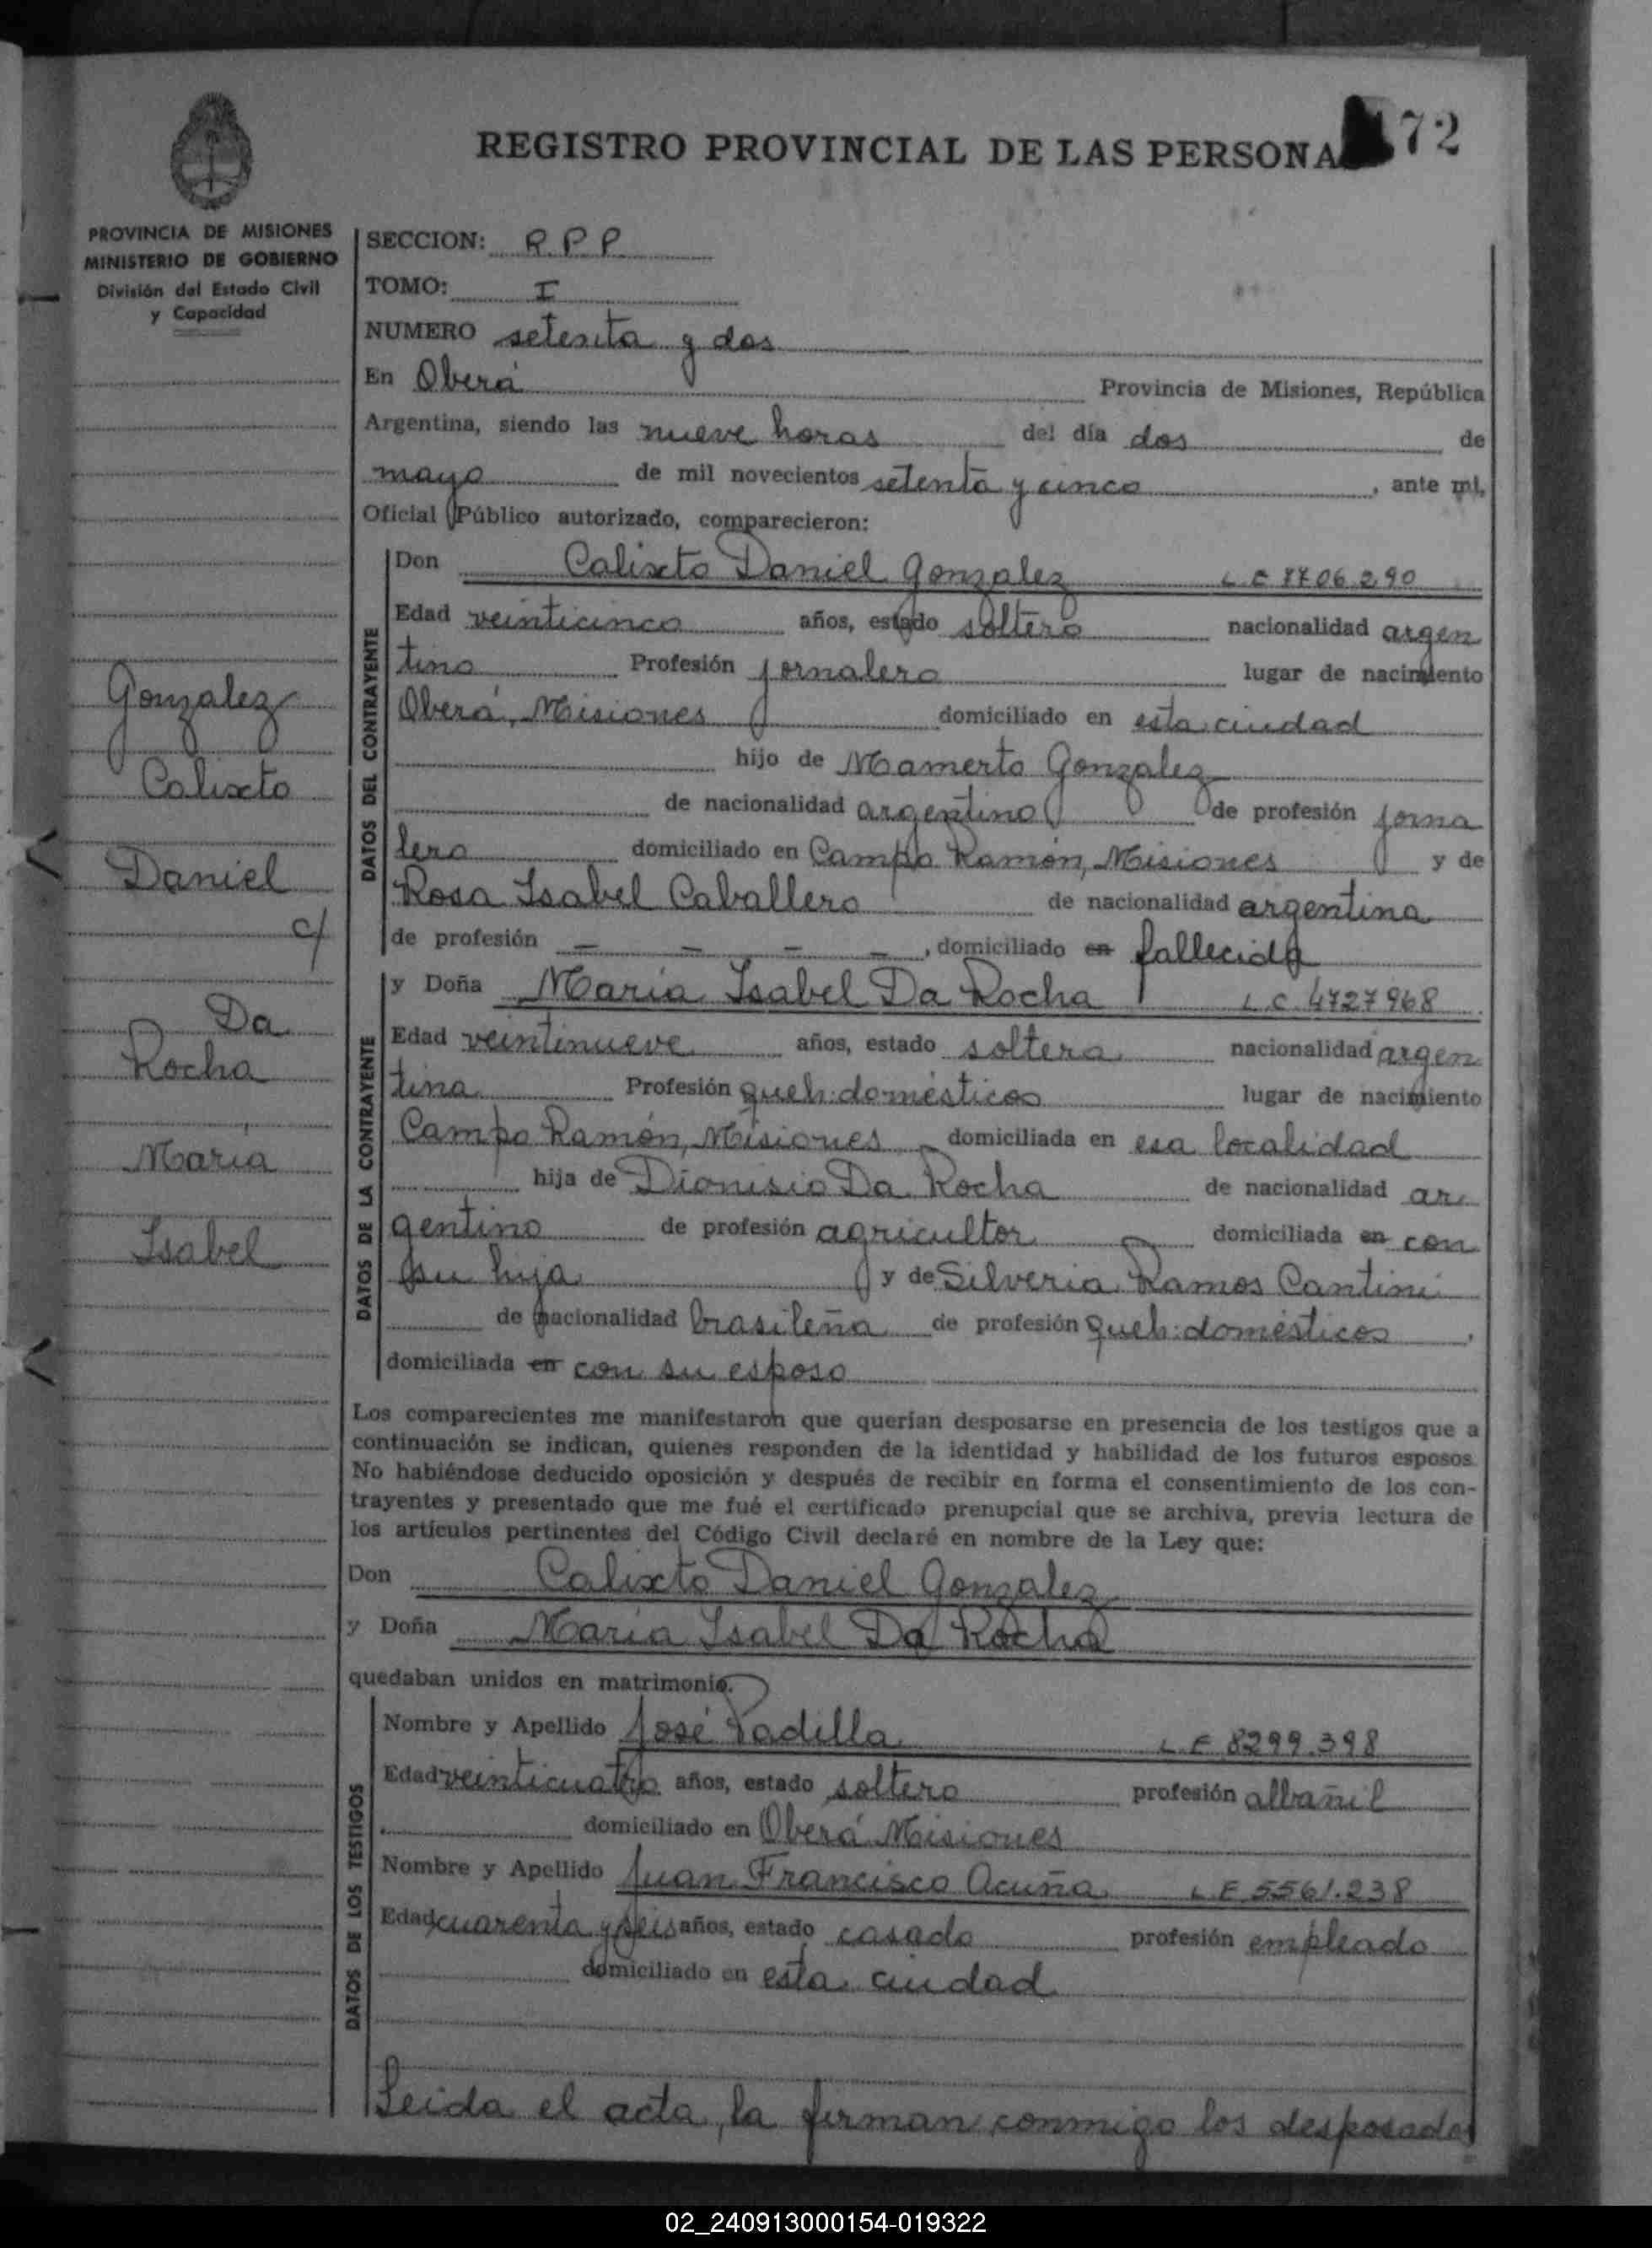 REGISTRO PROVINCIAL DE LAS PERSONA 72
PROVINCIA DE MISIONES
MINISTERIO DE GOBIERNO
División del Estado Civil
y Capacidad
SECCION: R.P.P
TOMO: I
NUMERO setenta y dos
En Oberá Provincia de Misiones, República
Argentina, siendo las nueve horas del día dos de
mayo de mil novecientos setenta y cinco, ante mí,
Oficial Público autorizado, comparecieron:
Gonzalez
Calixto
Daniel
c/
Da
Rocha
María
Isabel
DATOS DEL CONTRAYENTE
Don Calixto Daniel Gonzalez
Edad veinticinco años, estado soltero nacionalidad argen
tino Profesión jornalero lugar de nacimiento
Oberá, Misiones domiciliado en esta ciudad
hijo de Mamerto Gonzalez
de nacionalidad argentino de profesión jorna
lero domiciliado en Campo Ramón, Misiones y de
Rosa Isabel Caballero de nacionalidad argentina
de profesión — — — —, domiciliado en fallecida
DATOS DE LA CONTRAYENTE
y Doña María Isabel Da Rocha L.C. 4727968
Edad veintinueve años, estado soltera nacionalidad argen
tina Profesión queh: domésticos lugar de nacimiento
Campo Ramón, Misiones domiciliada en esa localidad
hija de Dionisio Da Rocha de nacionalidad ar
gentino de profesión agricultor domiciliada en con
su hija y de Silveria Ramos Cantini
de nacionalidad brasileña de profesión queh: domésticos,
domiciliada en con su esposo
Los comparecientes me manifestaron que querían desposarse en presencia de los testigos que a
continuación se indican, quienes responden de la identidad y habilidad de los futuros esposos.
No habiéndose deducido oposición y después de recibir en forma el consentimiento de los con-
trayentes y presentado que me fué el certificado prenupcial que se archiva, previa lectura de
los artículos pertinentes del Código Civil declaré en nombre de la Ley que:
Don Calixto Daniel Gonzalez
y Doña María Isabel Da Rocha
quedaban unidos en matrimonio.
DATOS DE LOS TESTIGOS
Nombre y Apellido José Padilla L.E 8299.398
Edad veinticuatro años, estado soltero profesión albañil
domiciliado en Oberá Misiones
Nombre y Apellido Juan Francisco Acuña L.E 5561.238
Edad cuarenta y seis años, estado casado profesión empleado
domiciliado en esta ciudad
Leida el acta, la firman conmigo los desposados
02_240913000154-019322